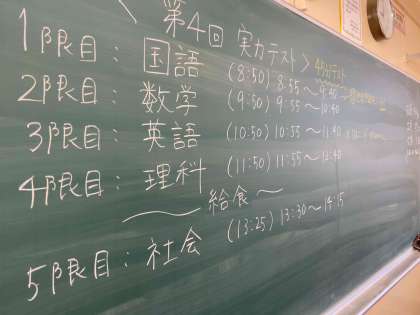 第4回 実力テスト 45分テスト
1限目: 国語 (8:50) 8:55〜9:40
2限目: 数学 (9:50) 9:55〜10:40
3限目: 英語 (10:50) 10:55〜11:40
4限目: 理科 (11:50) 11:55〜12:40
〜給食〜
5限目: 社会 (13:25) 13:30〜14:15